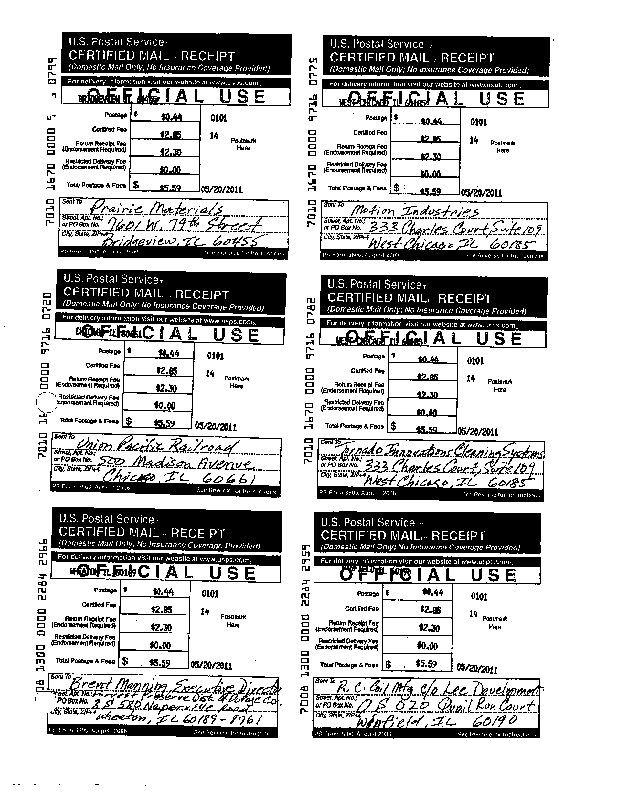 U.S. Postal Service
CERTIFIED MAIL RECEIPT
(Domestic Mail Only; No Insurance Coverage Provided)
For delivery information visit our website at www.usps.com
BRIDGEVIEW IL 60455
OFFICIAL USE
Postage $ $0.44 0101
Certified Fee $2.85 14 Postmark Here
Return Receipt Fee (Endorsement Required) $2.30
Restricted Delivery Fee (Endorsement Required) $0.00
Total Postage & Fees $ $5.59 05/20/2011
Sent To Prairie Materials
Street, Apt. No.; or PO Box No. 7601 W. 79th Street
City, State, ZIP+4 Bridgeview, IL 60455
7010 1670 0000 9716 0799
U.S. Postal Service
CERTIFIED MAIL RECEIPT
(Domestic Mail Only; No Insurance Coverage Provided)
For delivery information visit our website at www.usps.com
WEST CHICAGO IL 60185
OFFICIAL USE
Postage $ $0.44 0101
Certified Fee $2.85 14 Postmark Here
Return Receipt Fee (Endorsement Required) $2.30
Restricted Delivery Fee (Endorsement Required) $0.00
Total Postage & Fees $ $5.59 05/20/2011
Sent To Motion Industries
Street, Apt. No.; or PO Box No. 333 Charles Court, Suite 109
City, State, ZIP+4 West Chicago, IL 60185
7010 1670 0000 9716 0775
U.S. Postal Service
CERTIFIED MAIL RECEIPT
(Domestic Mail Only; No Insurance Coverage Provided)
For delivery information visit our website at www.usps.com
OFFICIAL USE
Postage $ $0.44 0101
Certified Fee $2.85 14 Postmark Here
Return Receipt Fee (Endorsement Required) $2.30
Restricted Delivery Fee (Endorsement Required) $0.00
Total Postage & Fees $ $5.59 05/20/2011
Sent To Union Pacific Railroad
Street, Apt. No.; or PO Box No. 500 Madison Avenue
City, State, ZIP+4 Chicago, IL 60661
U.S. Postal Service
CERTIFIED MAIL RECEIPT
(Domestic Mail Only; No Insurance Coverage Provided)
For delivery information visit our website at www.usps.com
WEST CHICAGO IL 60185
OFFICIAL USE
Postage $ $0.44 0101
Certified Fee $2.85 14 Postmark Here
Return Receipt Fee (Endorsement Required) $2.30
Restricted Delivery Fee (Endorsement Required) $0.00
Total Postage & Fees $ $5.59 05/20/2011
Sent To Tornado Innovations Cleaning Systems
Street, Apt. No.; or PO Box No. 333 Charles Court, Suite 109
City, State, ZIP+4 West Chicago, IL 60185
7010 1670 0000 9716 0782
U.S. Postal Service
CERTIFIED MAIL RECEIPT
(Domestic Mail Only; No Insurance Coverage Provided)
For delivery information visit our website at www.usps.com
OFFICIAL USE
Postage $ $0.44 0101
Certified Fee $2.85 14 Postmark Here
Return Receipt Fee (Endorsement Required) $2.30
Restricted Delivery Fee (Endorsement Required) $0.00
Total Postage & Fees $ $5.59 05/20/2011
Sent To Brent Manning Executive Director
Forest Preserve Dist. of DuPage Co
3 S 580 Naperville Road
Wheaton, IL 60189-8761
1300 0000 2284 2966
U.S. Postal Service
CERTIFIED MAIL RECEIPT
(Domestic Mail Only; No Insurance Coverage Provided)
For delivery information visit our website at www.usps.com
OFFICIAL USE
Postage $ $0.44 0101
Certified Fee $2.85 14 Postmark Here
Return Receipt Fee (Endorsement Required) $2.30
Restricted Delivery Fee (Endorsement Required) $0.00
Total Postage & Fees $ $5.59 05/20/2011
Sent To R. C. Coil Mfg c/o Lee Development
0 S 020 Run Court
City, State, ZIP+4 Winfield, IL 60190
7008 1300 0000 2284 2959